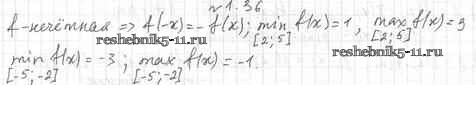 №1.36
f-нечётная => f(-x)=-f(x); min f(x)=1, max f(x)=3
[2;5] [2;5]
reshebnik5-11.ru reshebnik5-11.ru
min f(x)=-3; max f(x)=-1.
[-5;-2] [-5;-2]
reshebnik5-11.ru